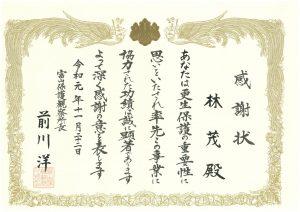 感謝状
林茂殿
あなたは更生保護の重要性に
思いをいたされ率先この事業に
協力された功績は誠に顕著であります
よって深く感謝の意を表します
令和元年十一月二十二日
富山保護観察所長
前川洋